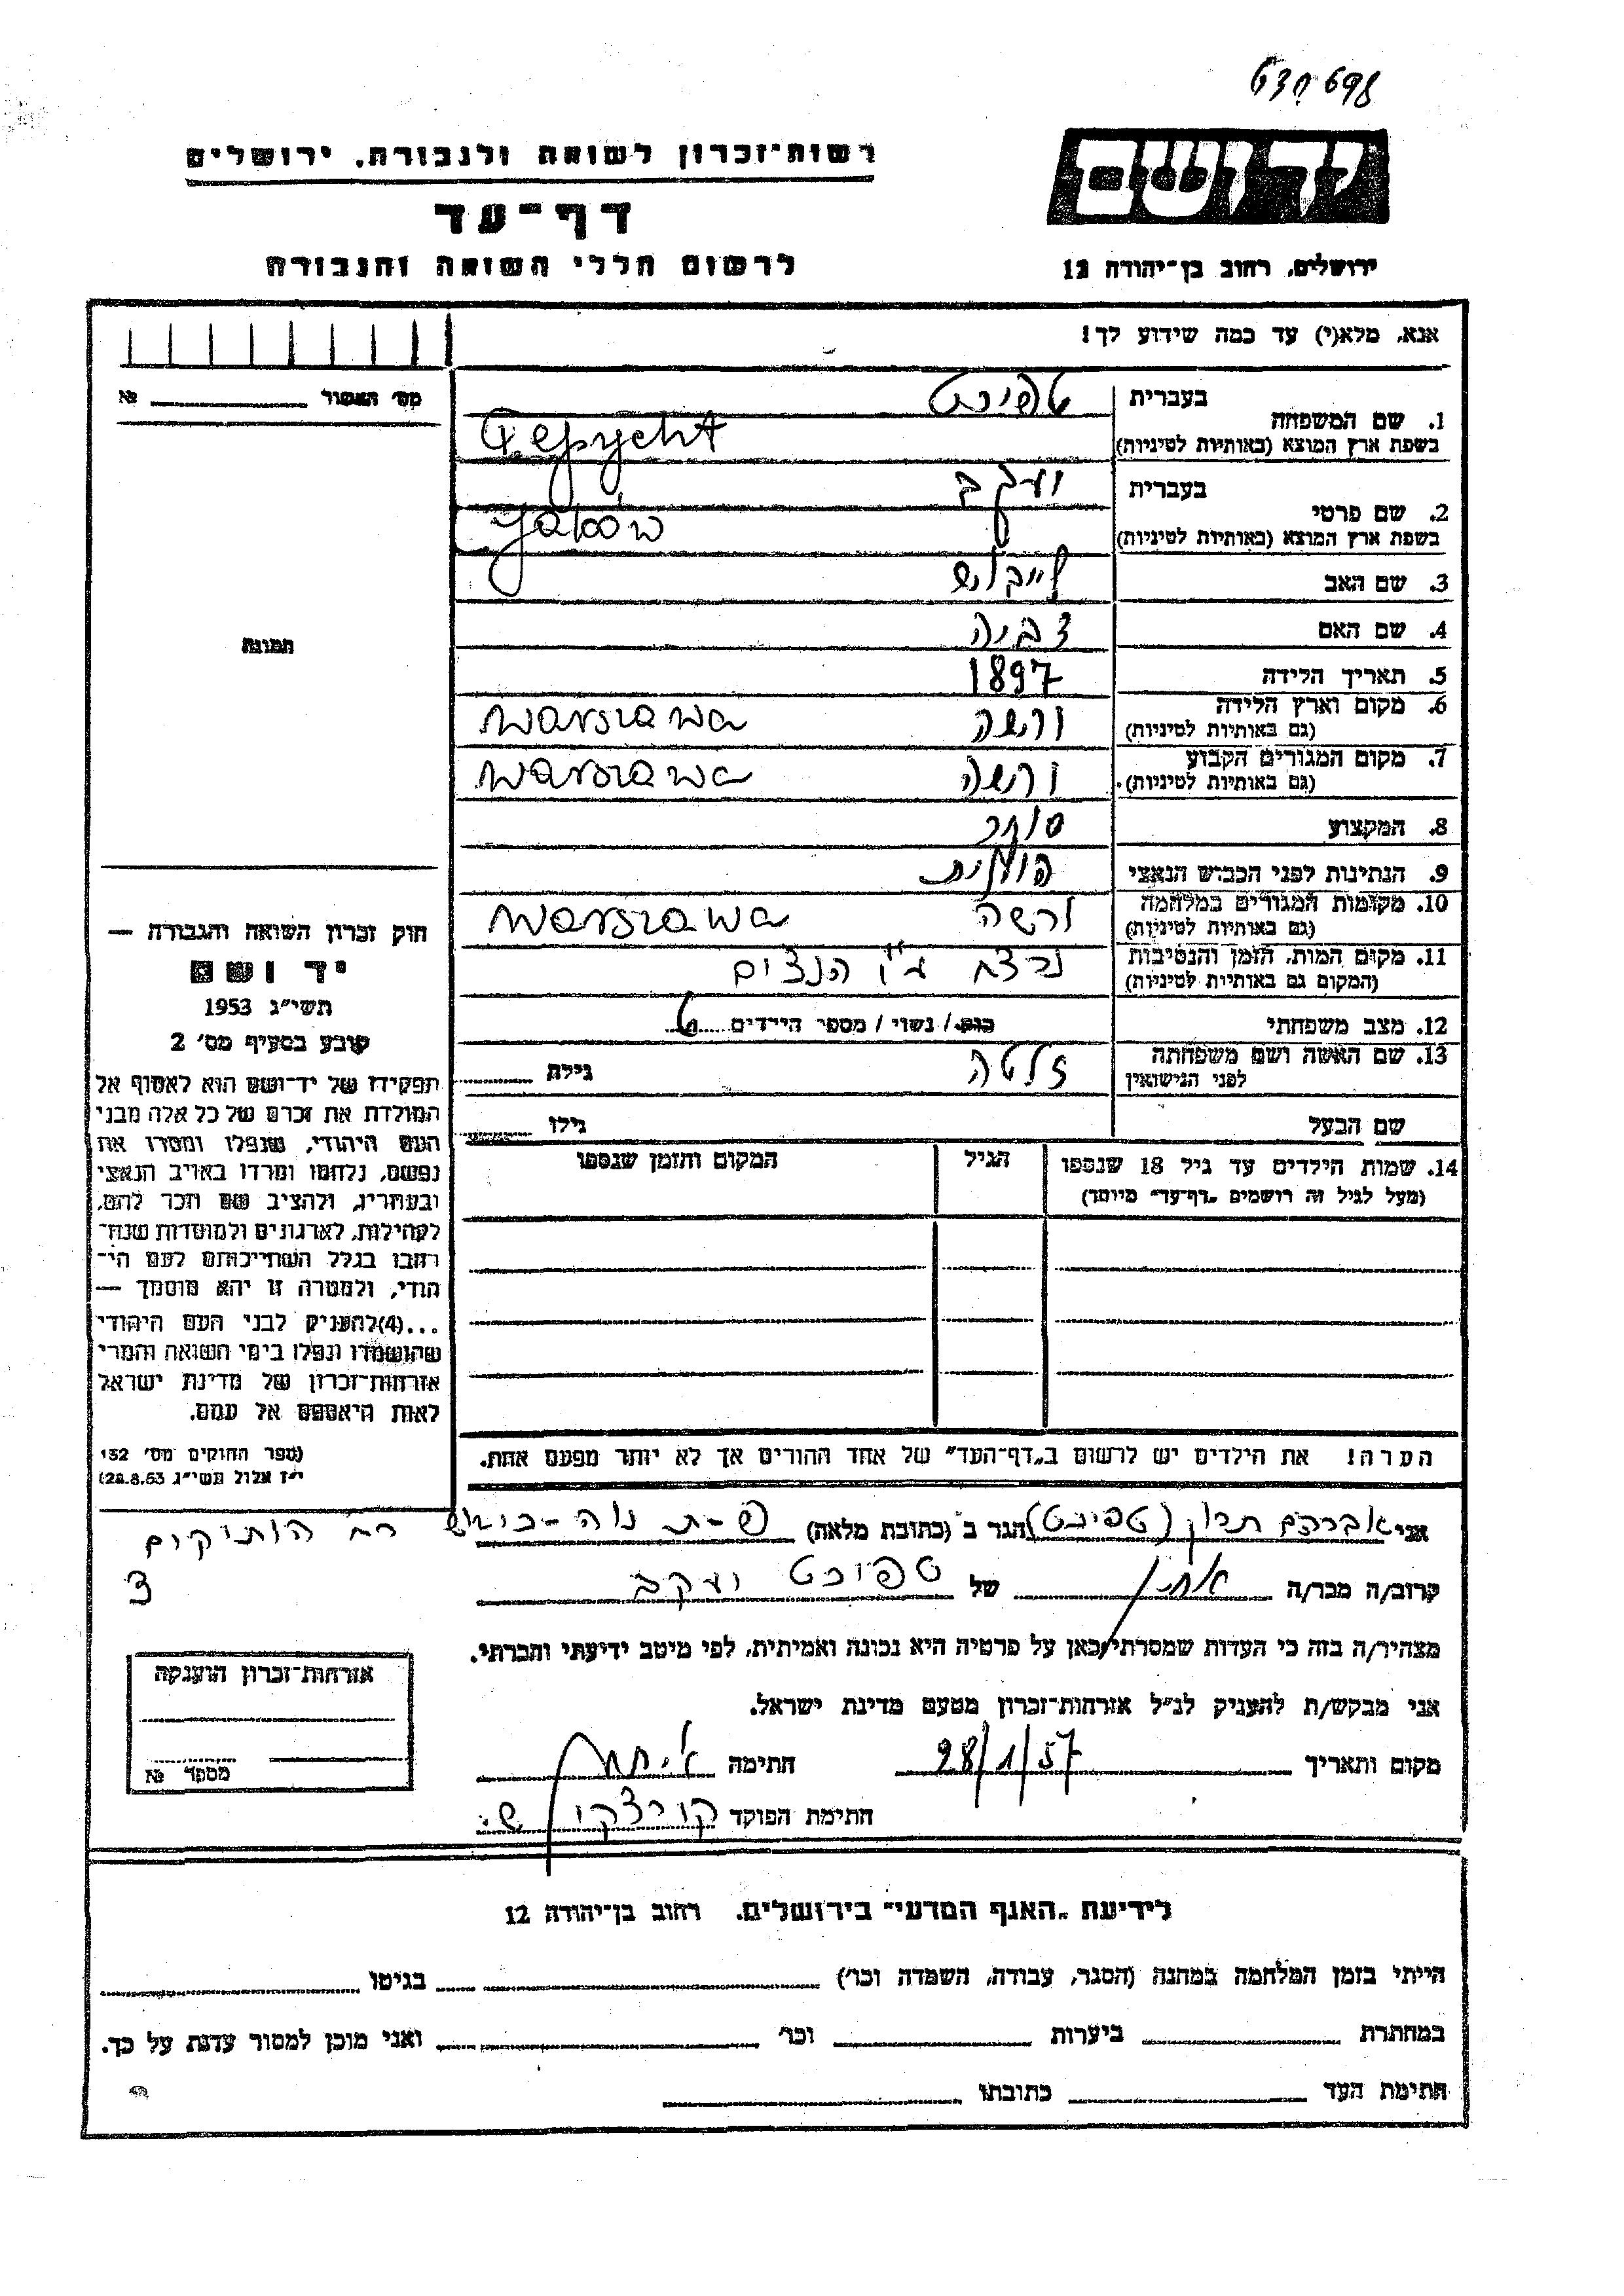 רשות־זכרון לשואה ולגבורה, ירושלים
דף־עד
לרשום חללי השואה והגבורה
יד ושם
ירושלים, רחוב בן־יהודה 12
אנא, מלא(י) עד כמה שידוע לך!
מס׳ האשור № 
1. שם המשפחה
בעברית טפיכט
בשפת ארץ המוצא (באותיות לטיניות) Tepycht
2. שם פרטי
בעברית יעקב
בשפת ארץ המוצא (באותיות לטיניות) Jaków
3. שם האב
4. שם האם צביה
5. תאריך הלידה 1897
6. מקום וארץ הלידה
(גם באותיות לטיניות) ורשה Warszawa
7. מקום המגורים הקבוע
(גם באותיות לטיניות) ורשה Warszawa
8. המקצוע סוחר
9. הנתינות לפני הכבוש הנאצי פולנית
10. מקומות המגורים במלחמה
(גם באותיות לטיניות) ורשה Warszawa
11. מקום המות, הזמן והנסיבות
(המקום גם באותיות לטיניות) נרצח ע״י הנצים
12. מצב משפחתי רווק / נשוי / מספר הילדים 6
13. שם האשה ושם משפחתה
לפני הנישואין זלטה גילה
שם הבעל גילו
14. שמות הילדים עד גיל 18 שנספו הגיל המקום והזמן שנספו
(מעל לגיל זה רושמים „דף־עד״ מיוחד)
הערה! את הילדים יש לרשום ב„דף־העד״ של אחד ההורים אך לא יותר מפעם אחת.
תמונה
חוק זכרון השואה והגבורה —
יד ושם
תשי״ג 1953
קובע בסעיף מס׳ 2
תפקידו של יד־ושם הוא לאסוף אל
המולדת את זכרם של כל אלה מבני
העם היהודי, שנפלו ומסרו את
נפשם, נלחמו ומרדו באויב הנאצי
ובעוזריו, ולהציב שם וזכר להם,
לקהילות, לארגונים ולמוסדות שנח־
רבו בגלל השתייכותם לעם הי־
הודי, ולמטרה זו יהא מוסמך —
...(4)להעניק לבני העם היהודי
שהושמדו ונפלו בימי השואה והמרי
אזרחות־זכרון של מדינת ישראל
לאות היאספם אל עמם.
(ספר החוקים מס׳ 132
י״ז אלול תשי״ג 28.8.53)
אני אברהם תרון (טפיכט) הגר ב (כתובת מלאה) פ-ת נוה-כיבוש רח הותיקים
3
קרוב/ה מכר/ה אחיו של טפיכט יעקב
מצהיר/ה בזה כי העדות שמסרתי כאן על פרטיה היא נכונה ואמיתית, לפי מיטב ידיעתי והכרתי.
אני מבקש/ת להעניק לנ״ל אזרחות־זכרון מטעם מדינת ישראל.
מקום ותאריך 28/1/57 חתימה
חתימת הפוקד
אזרחות־זכרון הוענקה
מספר №
לידיעת „האגף המדעי״ בירושלים, רחוב בן־יהודה 12
הייתי בזמן המלחמה במחנה (הסגר, עבודה, השמדה וכר׳) בגיטו
במחתרת ביערות וכר׳ ואני מוכן למסור עדות על כך.
חתימת העד כתובתו